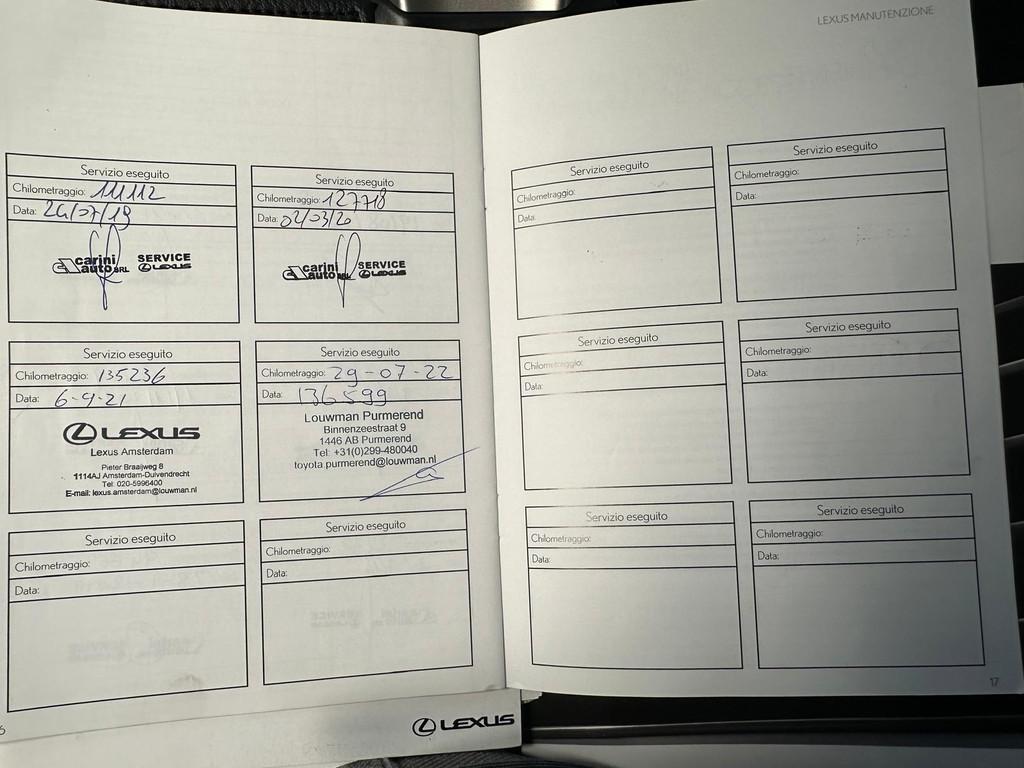 LEXUS MANUTENZIONE
Servizio eseguito
Chilometraggio: 111112
Data: 24/07/19
carini
auto SRL
SERVICE
LEXUS
Servizio eseguito
Chilometraggio: 127718
Data: 02/03/20
carini
auto
SERVICE
LEXUS
Servizio eseguito
Chilometraggio: 135236
Data: 6-4-21
LEXUS
Lexus Amsterdam
Pieter Braaijweg 8
1114AJ Amsterdam-Duivendrecht
Tel: 020-5996400
E-mail: lexus.amsterdam@louwman.nl
Servizio eseguito
Chilometraggio: 29-07-22
Data: 136599
Louwman Purmerend
Binnenzeestraat 9
1446 AB Purmerend
Tel: +31(0)299-480040
toyota.purmerend@louwman.nl
Servizio eseguito
Chilometraggio:
Data:
Servizio eseguito
Chilometraggio:
Data:
6
LEXUS
Servizio eseguito
Chilometraggio:
Data:
Servizio eseguito
Chilometraggio:
Data:
Servizio eseguito
Chilometraggio:
Data:
Servizio eseguito
Chilometraggio:
Data:
Servizio eseguito
Chilometraggio:
Data:
Servizio eseguito
Chilometraggio:
Data:
17